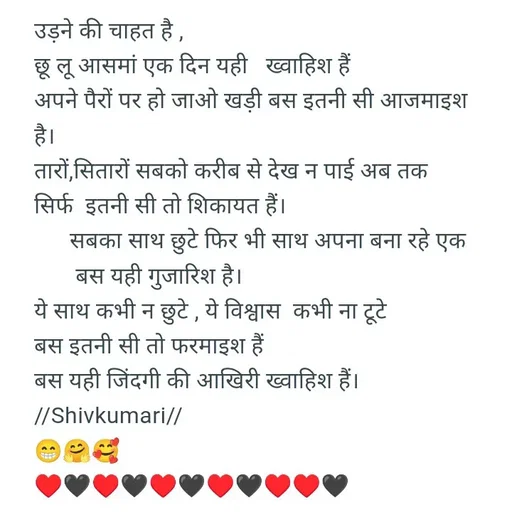 उड़ने की चाहत है ,
छू लू आसमां एक दिन यही ख्वाहिश हैं
अपने पैरों पर हो जाओ खड़ी बस इतनी सी आजमाइश
है।
तारों,सितारों सबको करीब से देख न पाई अब तक
सिर्फ इतनी सी तो शिकायत हैं।
सबका साथ छुटे फिर भी साथ अपना बना रहे एक
बस यही गुजारिश है।
ये साथ कभी न छुटे , ये विश्वास कभी ना टूटे
बस इतनी सी तो फरमाइश हैं
बस यही जिंदगी की आखिरी ख्वाहिश हैं।
//Shivkumari//
😁🤗🥰
❤️🖤❤️🖤❤️🖤❤️🖤❤️❤️🖤